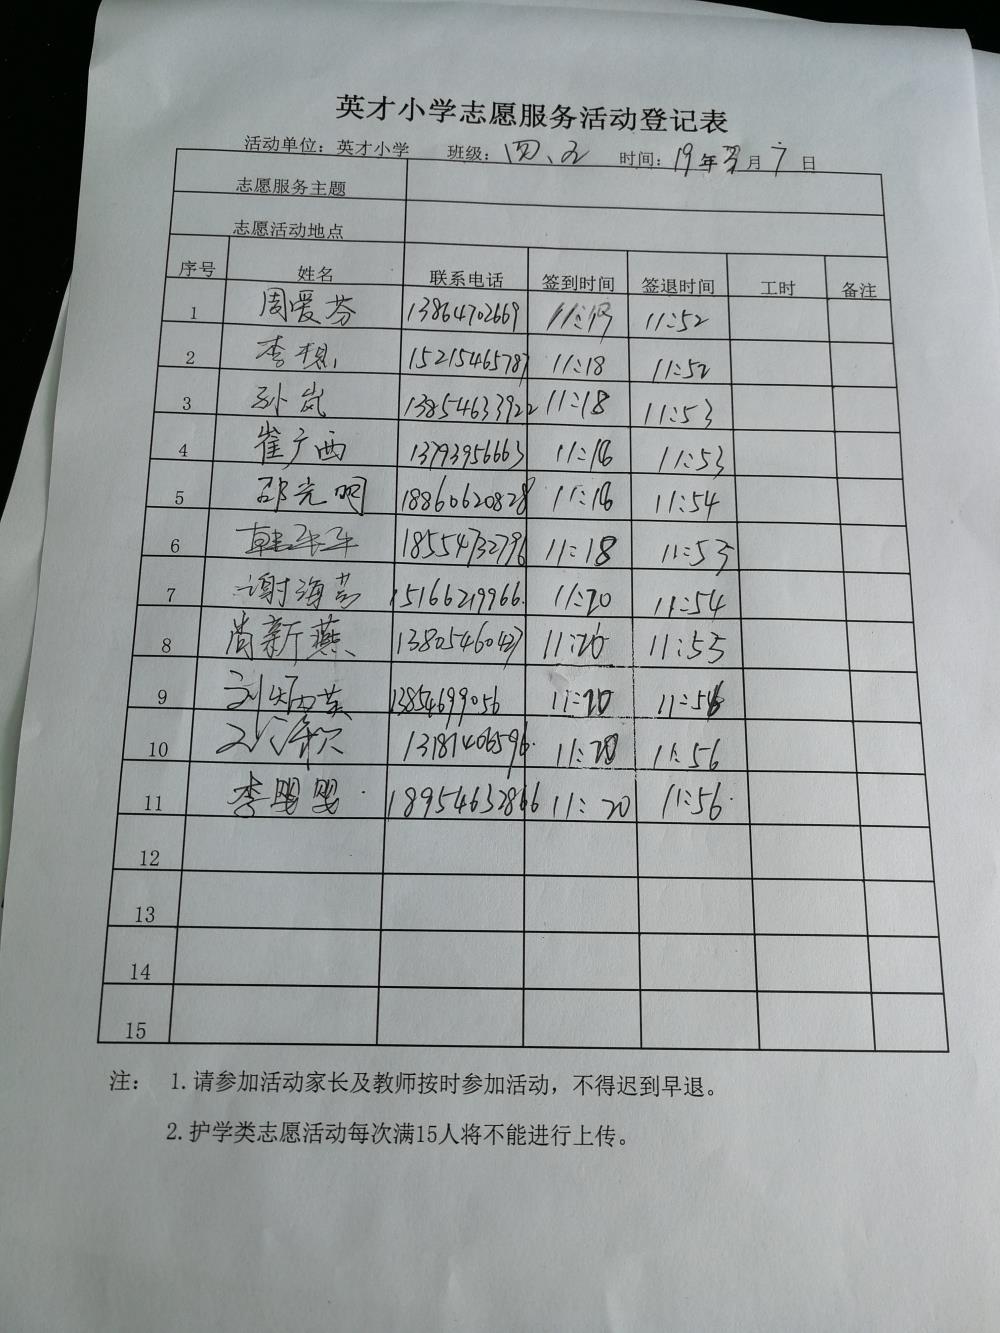 英才小学志愿服务活动登记表
活动单位：英才小学 班级：四、五 时间：19年 月 日
志愿服务主题
志愿活动地点
序号 姓名 联系电话 签到时间 签退时间 工时 备注
1 周爱芬 13864702669 11:19 11:52
2 李 15215465787 11:18 11:52
3 孙岚 13854633922 11:18 11:53
4 崔广西 13793956663 11:16 11:53
5 邵光明 18860620828 11:16 11:54
6 韩 18554732796 11:18 11:53
7 谢海 15166219966 11:20 11:54
8 尚新燕 13805460437 11:20 11:53
9 刘炳英 13854699056 11:20 11:56
10 13181406596 11:20 11:56
11 李婴婴 18954632866 11:20 11:56
12
13
14
15
注： 1.请参加活动家长及教师按时参加活动，不得迟到早退。
2.护学类志愿活动每次满15人将不能进行上传。